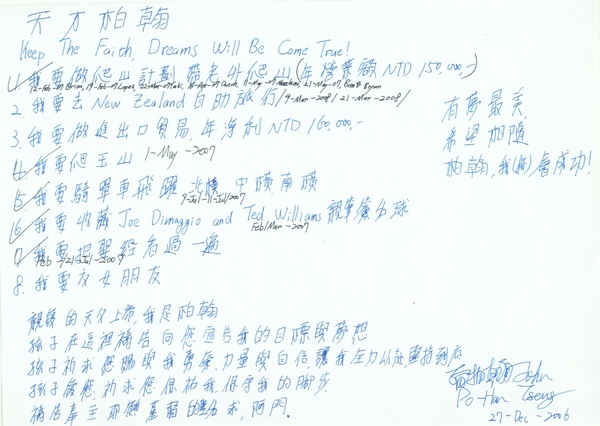 天才柏翰
Keep The Faith, Dreams Will Be Come True!
1. 我要做爬山計劃帶老外爬山(年營業額NTD 150,000,-)
2. 我要去New Zealand自助旅行/9-Mar-2008/21-Mar-2008/
3. 我要做進出口貿易,年淨利NTD 160,000,-
4. 我要爬玉山 1-May-2007
5. 我要騎單車飛躍北橫 中橫南橫
9-Jul-11-Jul/2007
6. 我要收藏Joe Dimaggio and Ted Williams 親筆簽名球
Feb/Mar-2007
7. 我要把聖經看過一遍
Feb-/21-Jul-2007
8. 我要交女朋友
有夢最美
希望相隨
柏翰,我(你)會成功!
親愛的天父上帝,我是柏翰
孩子在這裡禱告向您宣告我的目標與夢想
孩子祈求您賜與我勇氣,力量與自信讓我全力以赴堅持到底
孩子感恩,祈求您保祐我,保守我的腳步
禱告奉主耶穌基督的聖名求,阿門。
John
Po-Han Tseng
27-Dec-2006